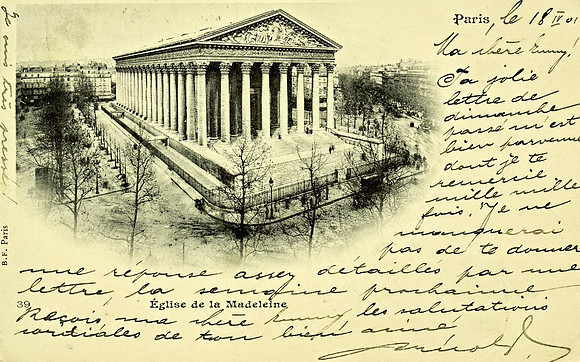 Paris, le 18 IV 01
Ma chère Emmy!
Ta jolie
lettre de
dimanche
passé m'est
bien parvenue
dont je te
remercie
mille mille
fois. Je ne
manquerai
pas de te donner
une réponse assez détailles par une
lettre la semaine prochaine
39 Église de la Madeleine
Reçois, ma chère Emmy les salutations
cordiales de ton bien aimé
Arnold.
Je suis très pressé!
B.F. Paris